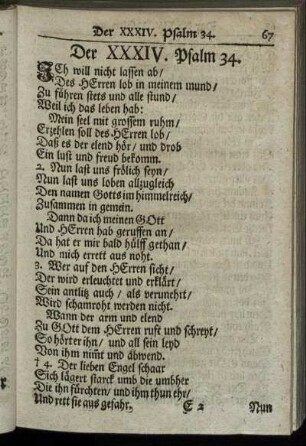 Der XXXIV. Psalm 34. 67
Der XXXIV. Psalm 34.
ICh will nicht lassen ab/
Des HErren lob in meinem mund/
Zu führen stets und alle stund/
Weil ich das leben hab:
Mein seel mit grossem ruhm/
Erzehlen soll des HErren lob/
Daß es der elend hör/ und drob
Ein lust und freud bekomm.
2. Nun last uns frölich seyn/
Nun last uns loben allzugleich
Den namen Gotts im himmelreich/
Zusammen in gemein.
Dann da ich meinen GOtt
Und HErren hab geruffen an/
Da hat er mir bald hülff gethan/
Und mich errett aus noht.
3. Wer auf den HErren sicht/
Der wird erleuchtet und erklärt/
Sein antlitz auch/ als verunehrt/
Wird schamroht werden nicht.
Wann der arm und elend
Zu GOtt dem HErren rufft und schreyt/
So hört er ihn/ und all sein leyd
Von ihm nim̃t und abwend.
† 4. Der lieben Engel schaar
Sich lägert starck umb die umbher
Die ihn fürchten/ und ihm thun ehr/
Und rett sie aus gefahr.
E 2 Nun